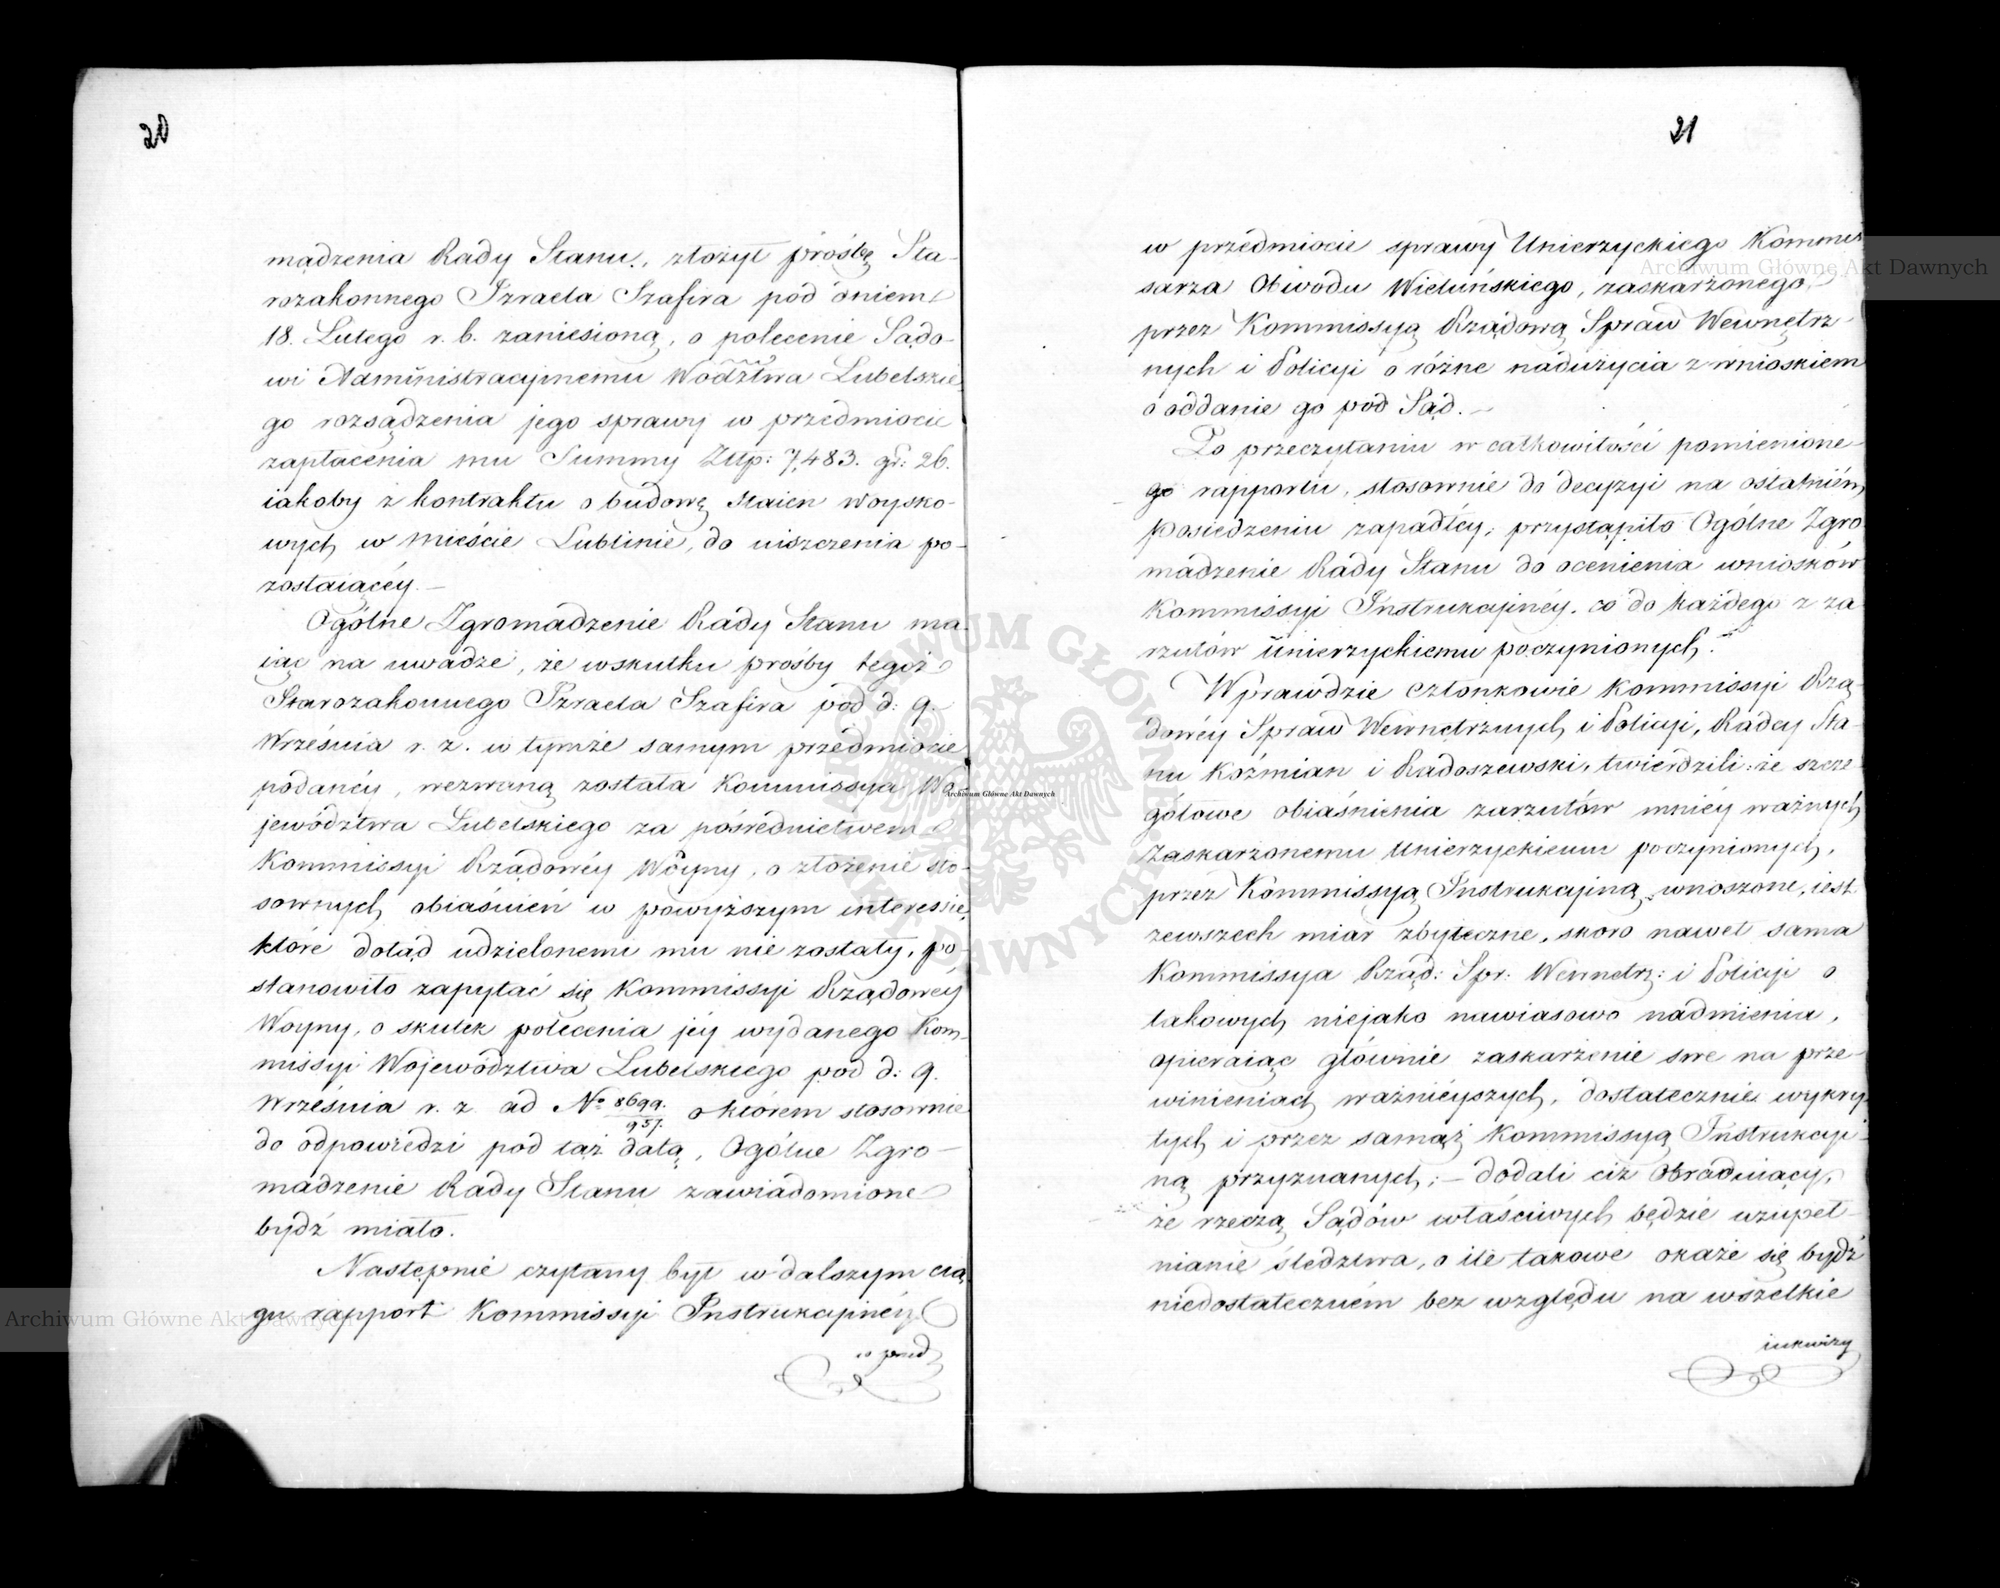 20
madzenia Rady Stanu, złożył prośbę Sta-
rozakonnego Izraela Szafira pod dniem
18. Lutego r. b. zaniesioną, o polecenie Sądo-
wi Administracyinemu Wodztwa Lubelskie-
go rozsądzenia jego sprawy w przedmiocie
zapłacenia mu Summy Złtp: 7,483. gr: 26.
iakoby z kontraktu o budowę staien woysko-
wych w mieście Lublinie, do uiszczenia po-
zostaiącéy.—
Ogólne Zgromadzenie Rady Stanu ma-
iąc na uwadze, że wskutku prośby tegoż
Starozakonnego Izraela Szafira pod d: 9.
Września r. z. w tymże samym przedmiocie
podanéy, wezwaną została Kommissya Wo-
jewództwa Lubelskiego za pośrednictwem
Kommissyi Rządowéy Woyny, o złożenie sto-
sownych obiaśnień w powyższym interessie,
które dotąd udzielonemi mu nie zostały, po-
stanowiło zapytać się Kommissyi Rządowéy
Woyny, o skutek polecenia jéy wydanego Kom-
missyi Województwa Lubelskiego pod d: 9.
Września r. z. ad No 8699./957. o którem stosownie
do odpowiedzi pod taż datą, Ogólne Zgro-
madzenie Rady Stanu zawiadomione
bydź miało.
Następnie czytany był w dalszym cią-
gu rapport Kommissyi Instrukcyinéy
w przed
21
w przedmiocie sprawy Unierzyckiego Kommis-
sarza Obwodu Wieluńskiego, zaskarżonego
przez Kommissyą Rządową Spraw Wewnętrz-
nych i Policyi o różne nadużycia z wnioskiem
o oddanie go pod Sąd.—
Po przeczytaniu w całkowitości pomienione-
go rapportu, stosownie do decyzyi na ostatniém
posiedzeniu zapadłéy, przystąpiło Ogólne Zgro-
madzenie Rady Stanu do ocenienia wniosków
Kommissyi Instrukcyinéy, co do każdego z za-
rzutów Unierzyckiemu poczynionych.
Wprawdzie członkowie Kommissyi Rzą-
dowéy Spraw Wewnętrznych i Policyi, Radcy Sta-
nu Koźmian i Radoszewski, twierdzili: że szcze-
gółowe obiaśnienia zarzutów mniéy ważnych
zaskarżonemu Unierzyckiemu poczynionych,
przez Kommissyą Instrukcyiną wnoszone, iest
zewszech miar zbyteczne, skoro nawet sama
Kommissya Rząd: Spr: Wewnętrz: i Policyi o
takowych niejako nawiasowo nadmienia,
opieraiąc głównie zaskarżenie swe na prze-
winieniach ważnieyszych, dostatecznie wykry-
tych i przez samąż Kommissyą Instrukcyi-
ną przyznanych;— dodali ciż Obraduiący,
że rzeczą Sądów właściwych będzie uzupeł-
nianie śledztwa, o ile takowe okaże się bydź
niedostateczném bez względu na wszelkie
inkwizy
Archiwum Główne Akt Dawnych
Archiwum Główne Akt Dawnych
Archiwum Główne Akt Dawnych
ARCHIWUM GŁÓWNE AKT DAWNYCH